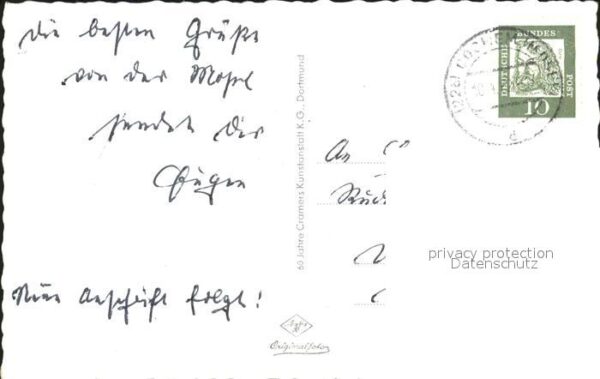 Die besten Grüße
von der Mosel
sendet dir
Eugen
Neue Anschrift folgt!
60 Jahre Cramers Kunstanstalt K.G., Dortmund
DEUTSCHE BUNDES POST
10
An
privacy protection
Datenschutz
Agfa
Originalfoto